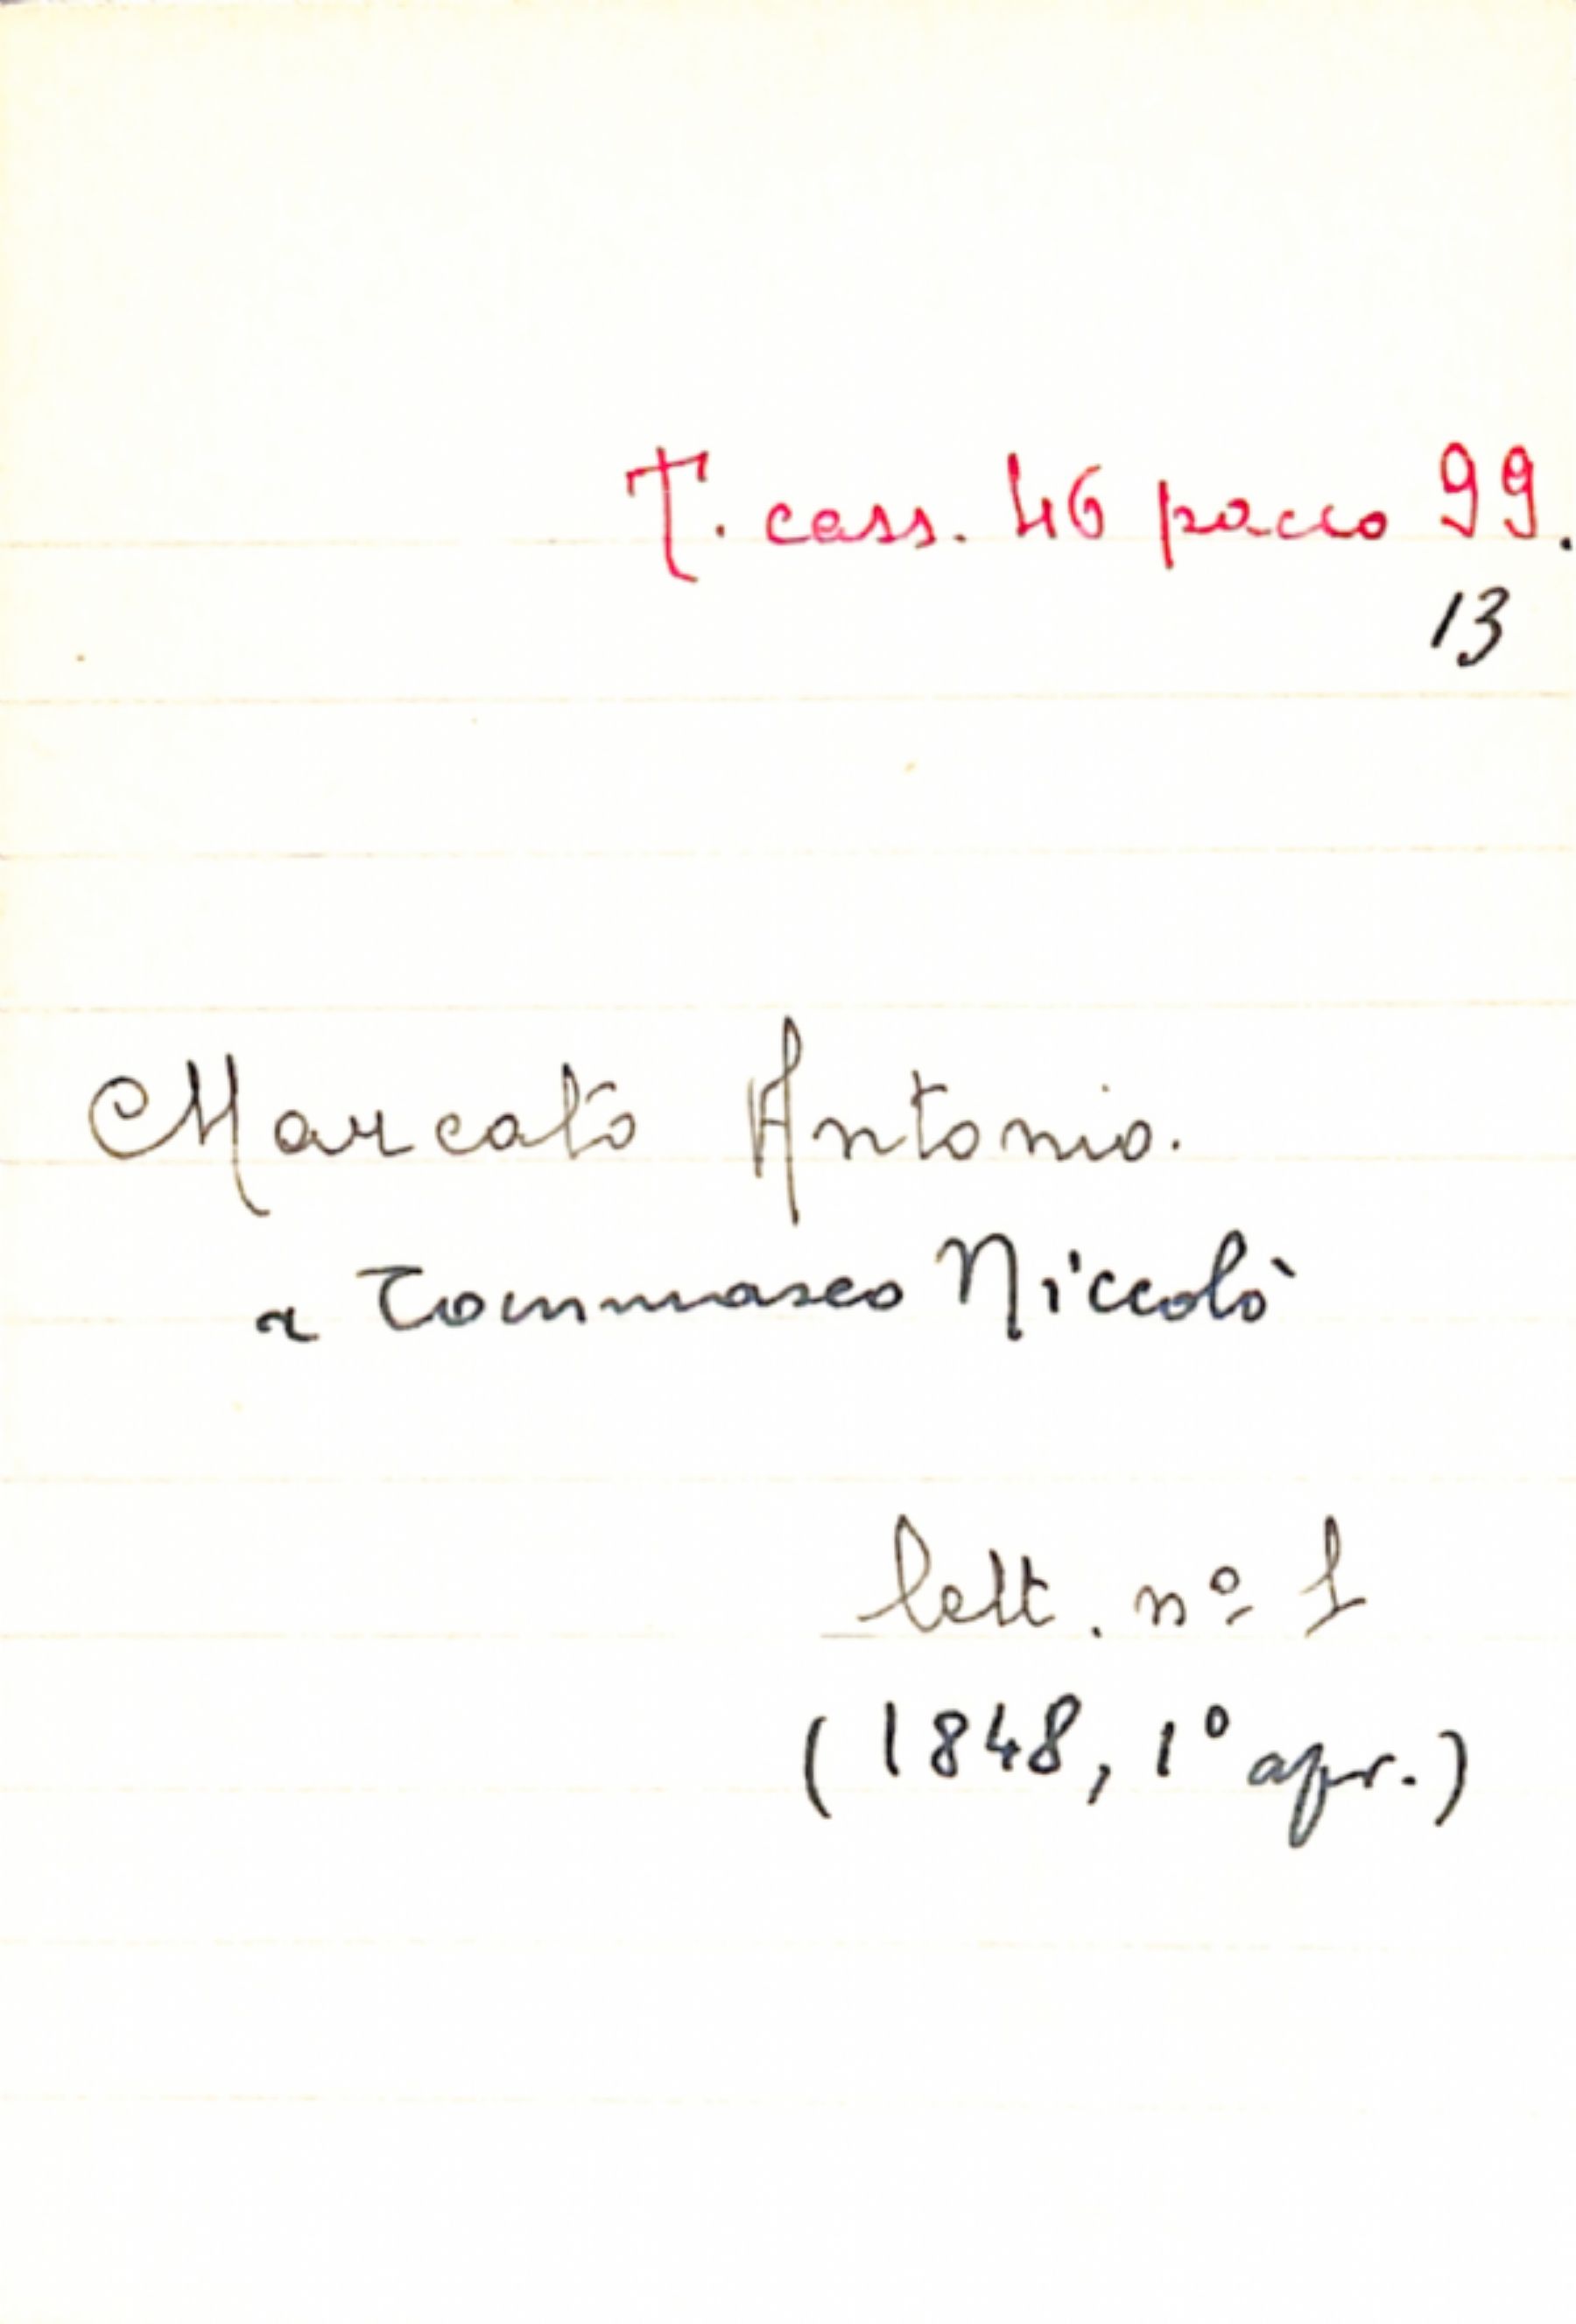 T. cass. 46 pacco 99.
13
Marcato Antonio.
a Tommaseo Niccolò
lett. nº 1
(1848, 1º apr.)